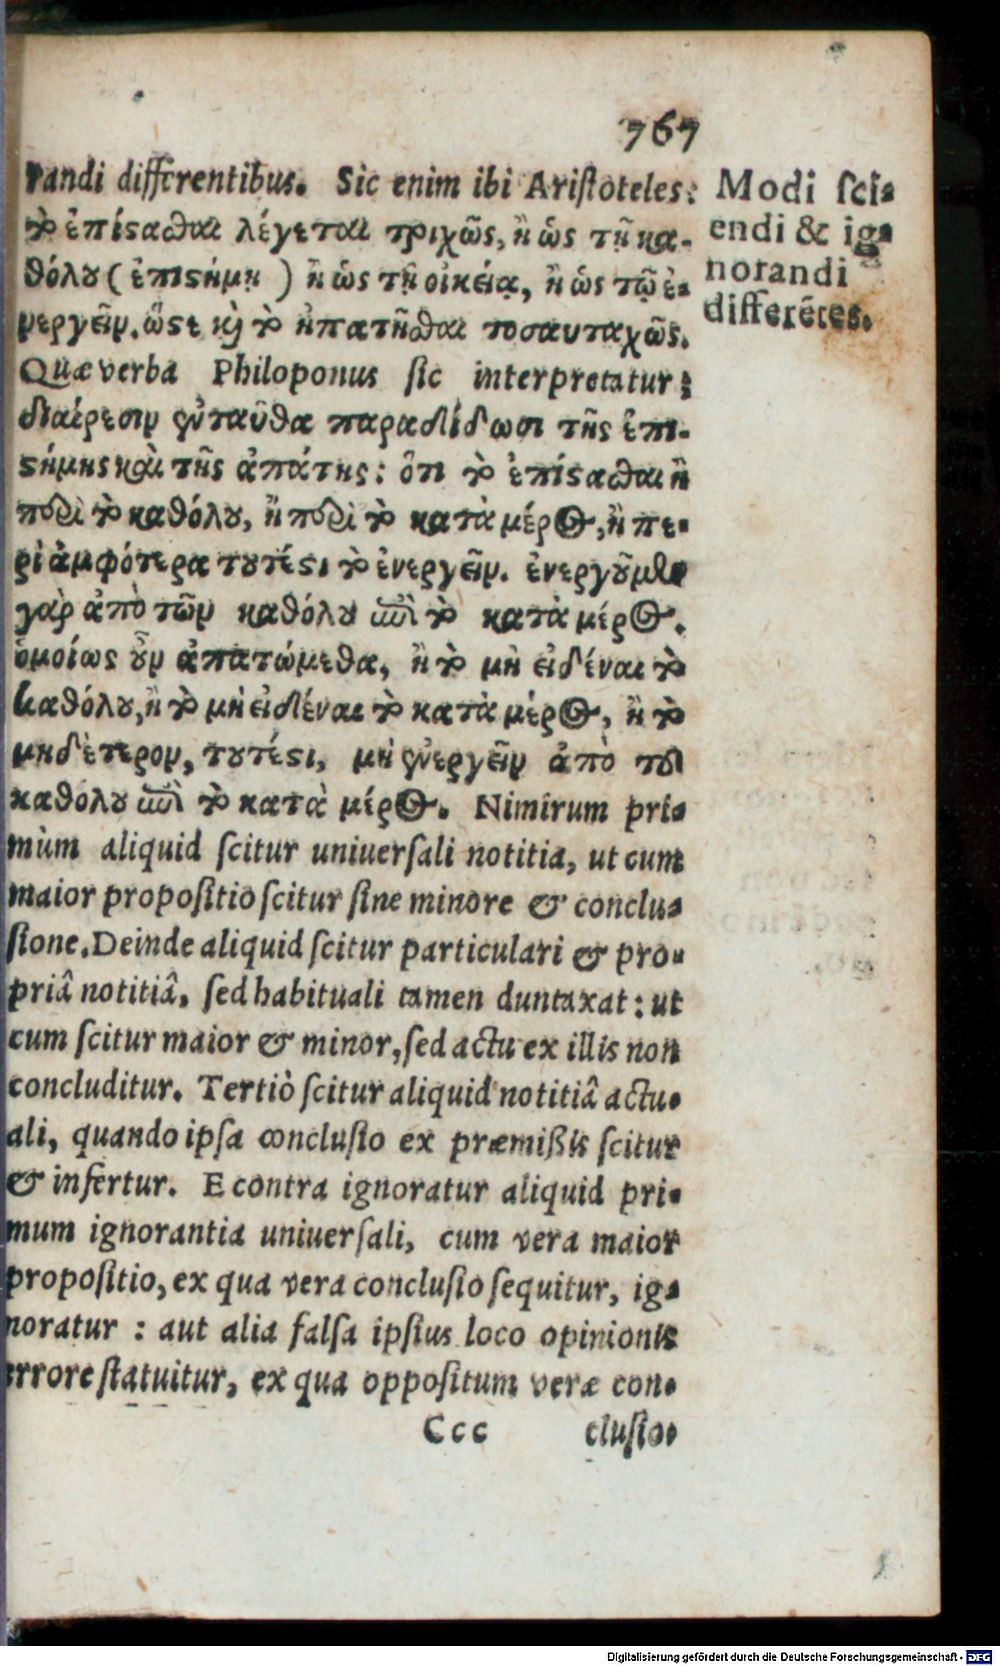 767
randi differentibus. Sic enim ibi Aristoteles:
τὸ ἐπίστασθαι λέγεται τριχῶς, ἢ ὡς τῇ κα-
θόλου (ἐπιστήμῃ) ἢ ὡς τῇ οἰκείᾳ, ἢ ὡς τῷ ἐ-
νεργεῖν. ὥστε καὶ τὸ ἠπατῆσθαι τοσαυταχῶς.
Quæ verba Philoponus sic interpretatur;
διαίρεσιν ἐνταῦθα παραδίδωσι τῆς ἐπι-
στήμης καὶ τῆς ἀπάτης: ὅτι τὸ ἐπίστασθαι ἢ
περὶ τὸ καθόλου, ἢ περὶ τὸ κατὰ μέρος, ἢ πε-
ρὶ ἀμφότερα τουτέστι τὸ ἐνεργεῖν. ἐνεργοῦμεν
γὰρ ἀπὸ τῶν καθόλου ἐπὶ τὸ κατὰ μέρος.
ὁμοίως οὖν ἀπατώμεθα, ἢ τὸ μὴ εἰδέναι τὸ
καθόλου, ἢ τὸ μὴ εἰδέναι τὸ κατὰ μέρος, ἢ τὸ
μηδέτερον, τουτέστι, μὴ ἐνεργεῖν ἀπὸ τοῦ
καθόλου ἐπὶ τὸ κατὰ μέρος. Nimirum pri-
mùm aliquid scitur uniuersali notitia, ut cum
maior propositio scitur sine minore & conclu-
sione. Deinde aliquid scitur particulari & pro-
priâ notitiâ, sed habituali tamen duntaxat: ut
cum scitur maior & minor, sed actu ex illis non
concluditur. Tertiò scitur aliquid notitiâ actu-
ali, quando ipsa conclusio ex præmißis scitur
& infertur. E contra ignoratur aliquid pri-
mum ignorantia uniuersali, cum vera maior
propositio, ex qua vera conclusio sequitur, ig-
noratur : aut alia falsa ipsius loco opinionis
errore statuitur, ex qua oppositum veræ con-
Ccc clusio-
Modi sci-
endi & ig-
norandi
differẽtes.
Digitalisierung gefördert durch die Deutsche Forschungsgemeinschaft - DFG